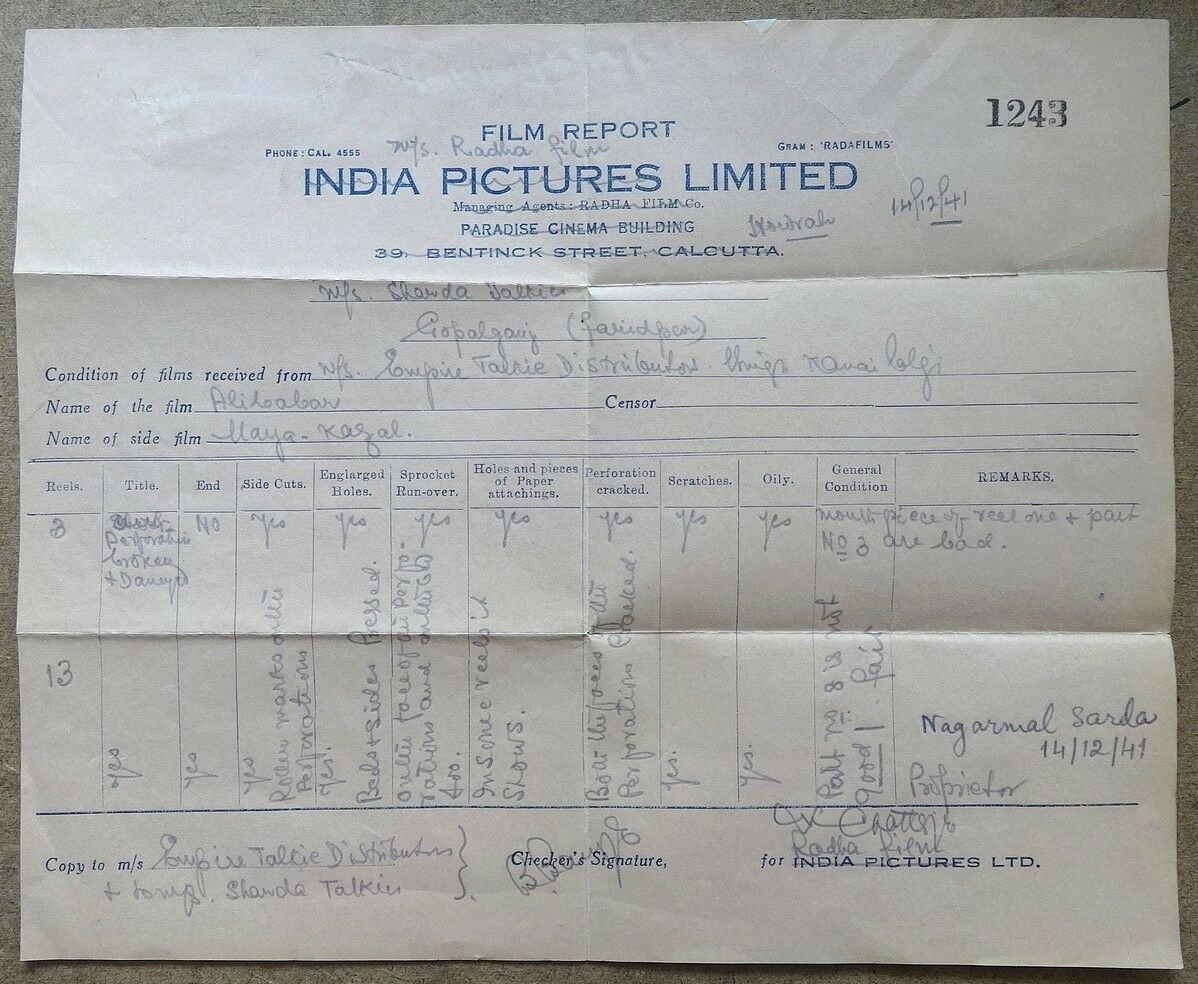 1243
FILM REPORT
PHONE: CAL. 4555
M/s. Radha film
GRAM: 'RADAFILMS'
INDIA PICTURES LIMITED
Managing Agents: RADHA FILM Co.
14/12/41
PARADISE CINEMA BUILDING
Howrah
39, BENTINCK STREET, CALCUTTA.
M/s. Sharda Talkies
Gopalganj (Faridpur)
Condition of films received from M/s. Empire Talkie Distributors
Name of the film Alibabar Censor
Name of side film Maya-Kazal.
Reels. Title. End Side Cuts. Englarged Holes. Sprocket Run-over. Holes and pieces of Paper attachings. Perforation cracked. Scratches. Oily. General Condition REMARKS.
3 Perforation broken NO Yes Yes Yes Yes Yes Yes Yes mouth piece of reel one + part No 3 are bad.
13 Yes Yes Yes
marks on the Perforations
Yes.
Sides Pressed.
In some reels it shows.
Perforation Cracked.
Yes. Yes.
Part No. 8 is not good. fair
Nagarmal Sarda
14/12/41
Proprietor
Radha Film
Copy to m/s Empire Talkie Distributors
+ Sharda Talkies
Checker's Signature,
for INDIA PICTURES LTD.